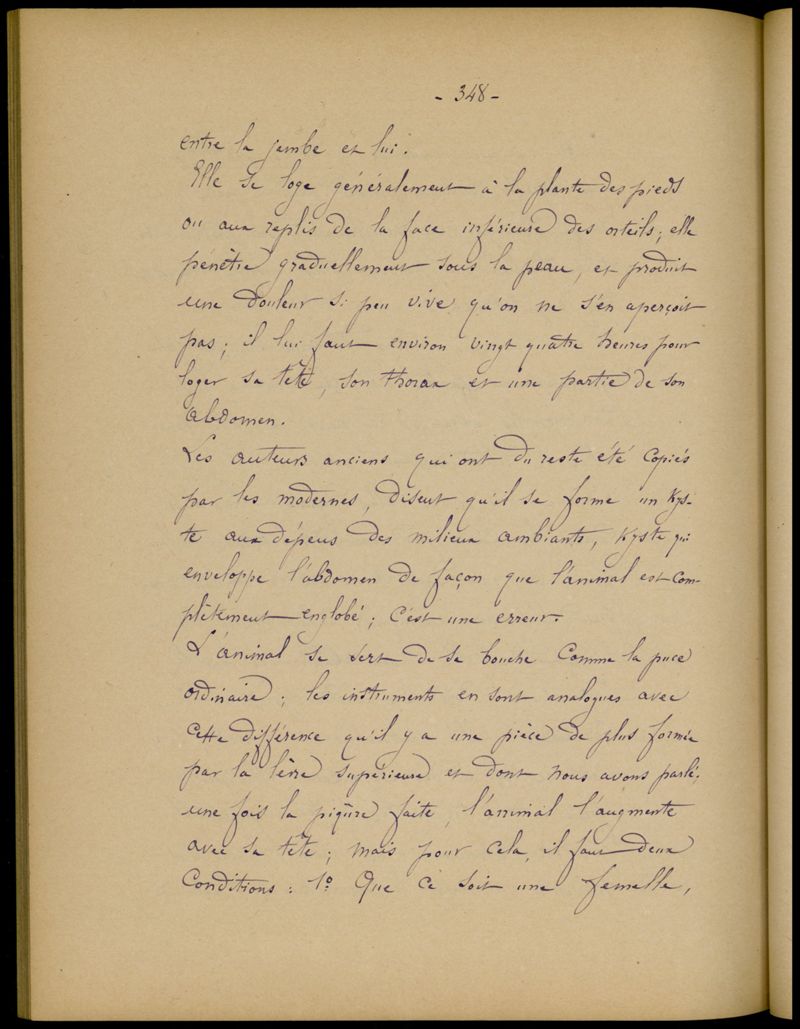 - 348 -
entre la jambe et lui.
Elle se loge généralement à la plante des pieds
ou aux replis de la face inférieure des orteils; elle
pénètre graduellement sous la peau, et produit
une douleur si peu vive qu'on ne s'en aperçoit
pas; il lui faut environ vingt quatre heures pour
loger sa tête, son thorax et une partie de son
abdomen.
Les auteurs anciens qui ont du reste été copiés
par les modernes, disent qu'il se forme un Kys-
te aux dépens des milieux ambiants, Kyste qui
enveloppe l'abdomen de façon que l'animal est com-
plètement englobé; c'est une erreur.
L'animal se sert de sa bouche comme la puce
ordinaire; les instruments en sont analogues avec
cette différence qu'il y a une pièce de plus formée
par la lèvre supérieure et dont nous avons parlé;
une fois la piqûre faite, l'animal l'augmente
avec sa tête; mais pour cela, il faut deux
conditions: 1º Que ce soit une femelle,